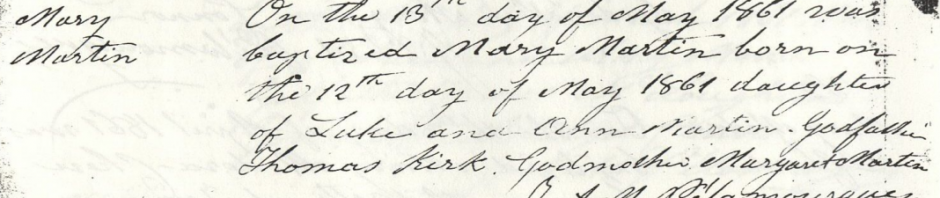 Mary
Martin
On the 13th day of May 1861 was
baptized Mary Martin born on
the 12th day of May 1861 daughter
of Luke and Ann Martin. Godfather
Thomas Kirk. Godmother Margaret Martin